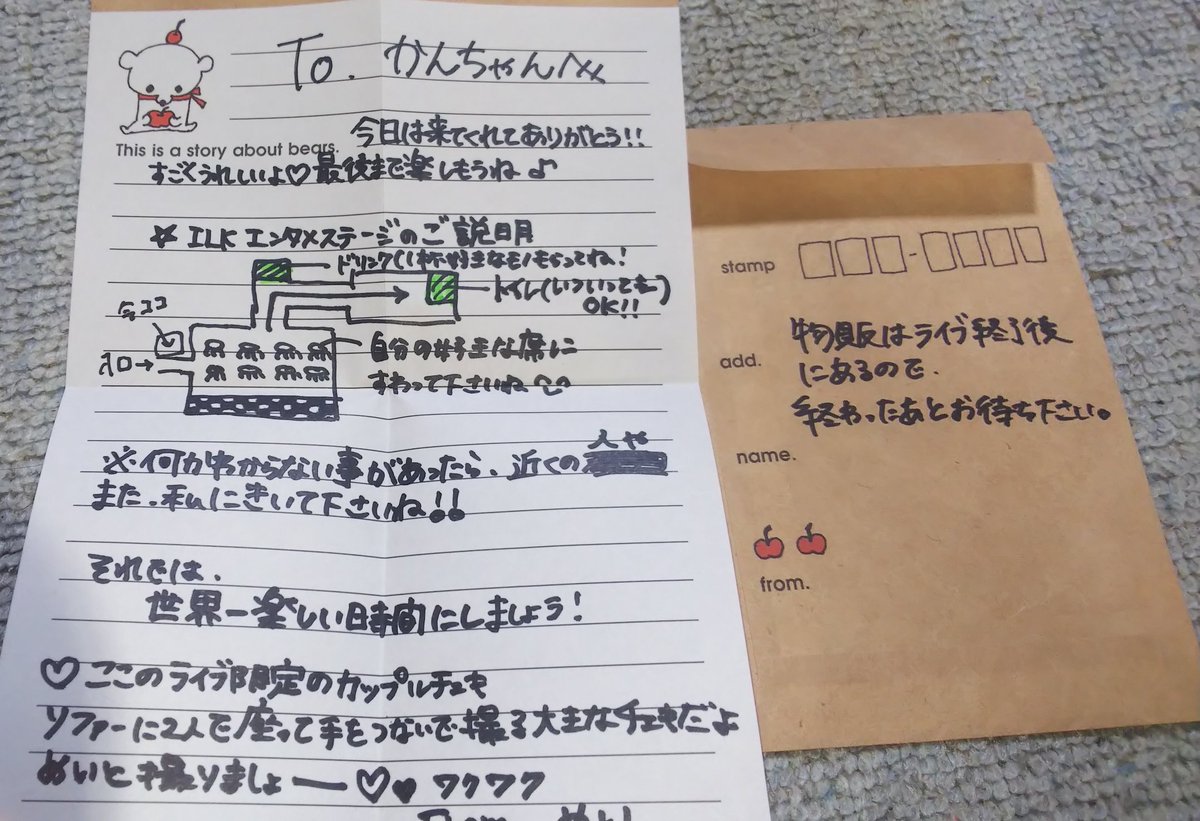 To. かんちゃんへ
今日は来てくれてありがとう!!
This is a story about bears.
すごくうれしいよ♡最後まで楽しもうね♪
☆ ILK エンタメステージのご説明
ドリンク(1杯好きなモノもらってね!
トイレ(いついっても)
OK!!
今ココ
入口→
自分の好きな席に
すわって下さいね
※何かわからない事があったら、近くの人や
また、私にきいて下さいね!!
それでは、
世界一楽しい時間にしましょう!
♡ここのライブ限定のカップルチェキ
ソファーに2人で座って手をつないで撮る大キなチェキだよ
めいと撮りましょー♡♥ワクワク
stamp
add.
物販はライブ終了後
にあるので、
終わったあとお待ち下さい。
name.
from.